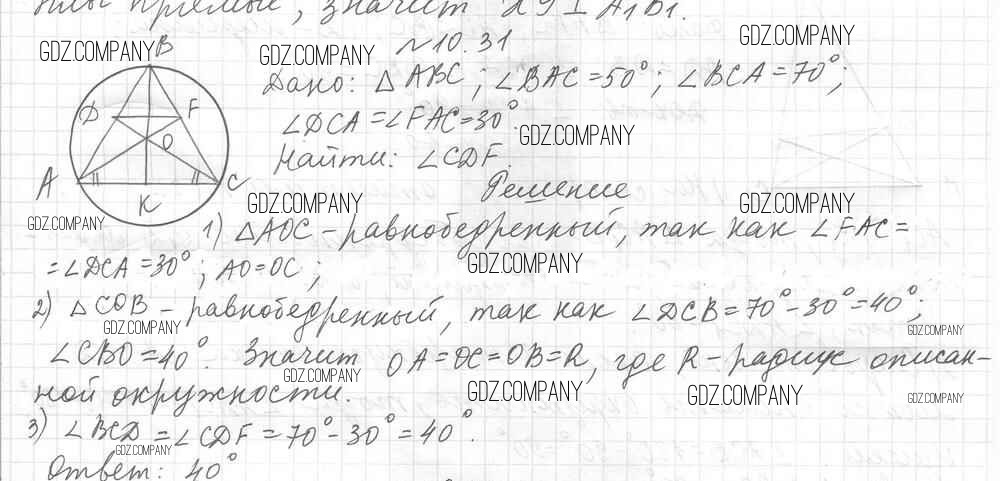 прямые, значит A₁B₁.
GDZ.COMPANY B GDZ.COMPANY №10.31 GDZ.COMPANY
Дано: △ABC; ∠BAC=50°; ∠BCA=70°;
D F ∠DCA=∠FAC=30°.
O GDZ.COMPANY
Найти: ∠CDF.
A C Решение
K GDZ.COMPANY GDZ.COMPANY
GDZ.COMPANY 1) △AOC-равнобедренный, так как ∠FAC=
=∠DCA=30°; AO=OC; GDZ.COMPANY
2) △COB-равнобедренный, так как ∠DCB=70°-30°=40°;
GDZ.COMPANY GDZ.COMPANY
∠CBO=40°. Значит OA=OC=OB=R, где R-радиус описан-
GDZ.COMPANY
ной окружности. GDZ.COMPANY GDZ.COMPANY GDZ.COMPANY
3) ∠BCD=∠CDF=70°-30°=40°.
GDZ.COMPANY
Ответ: 40°